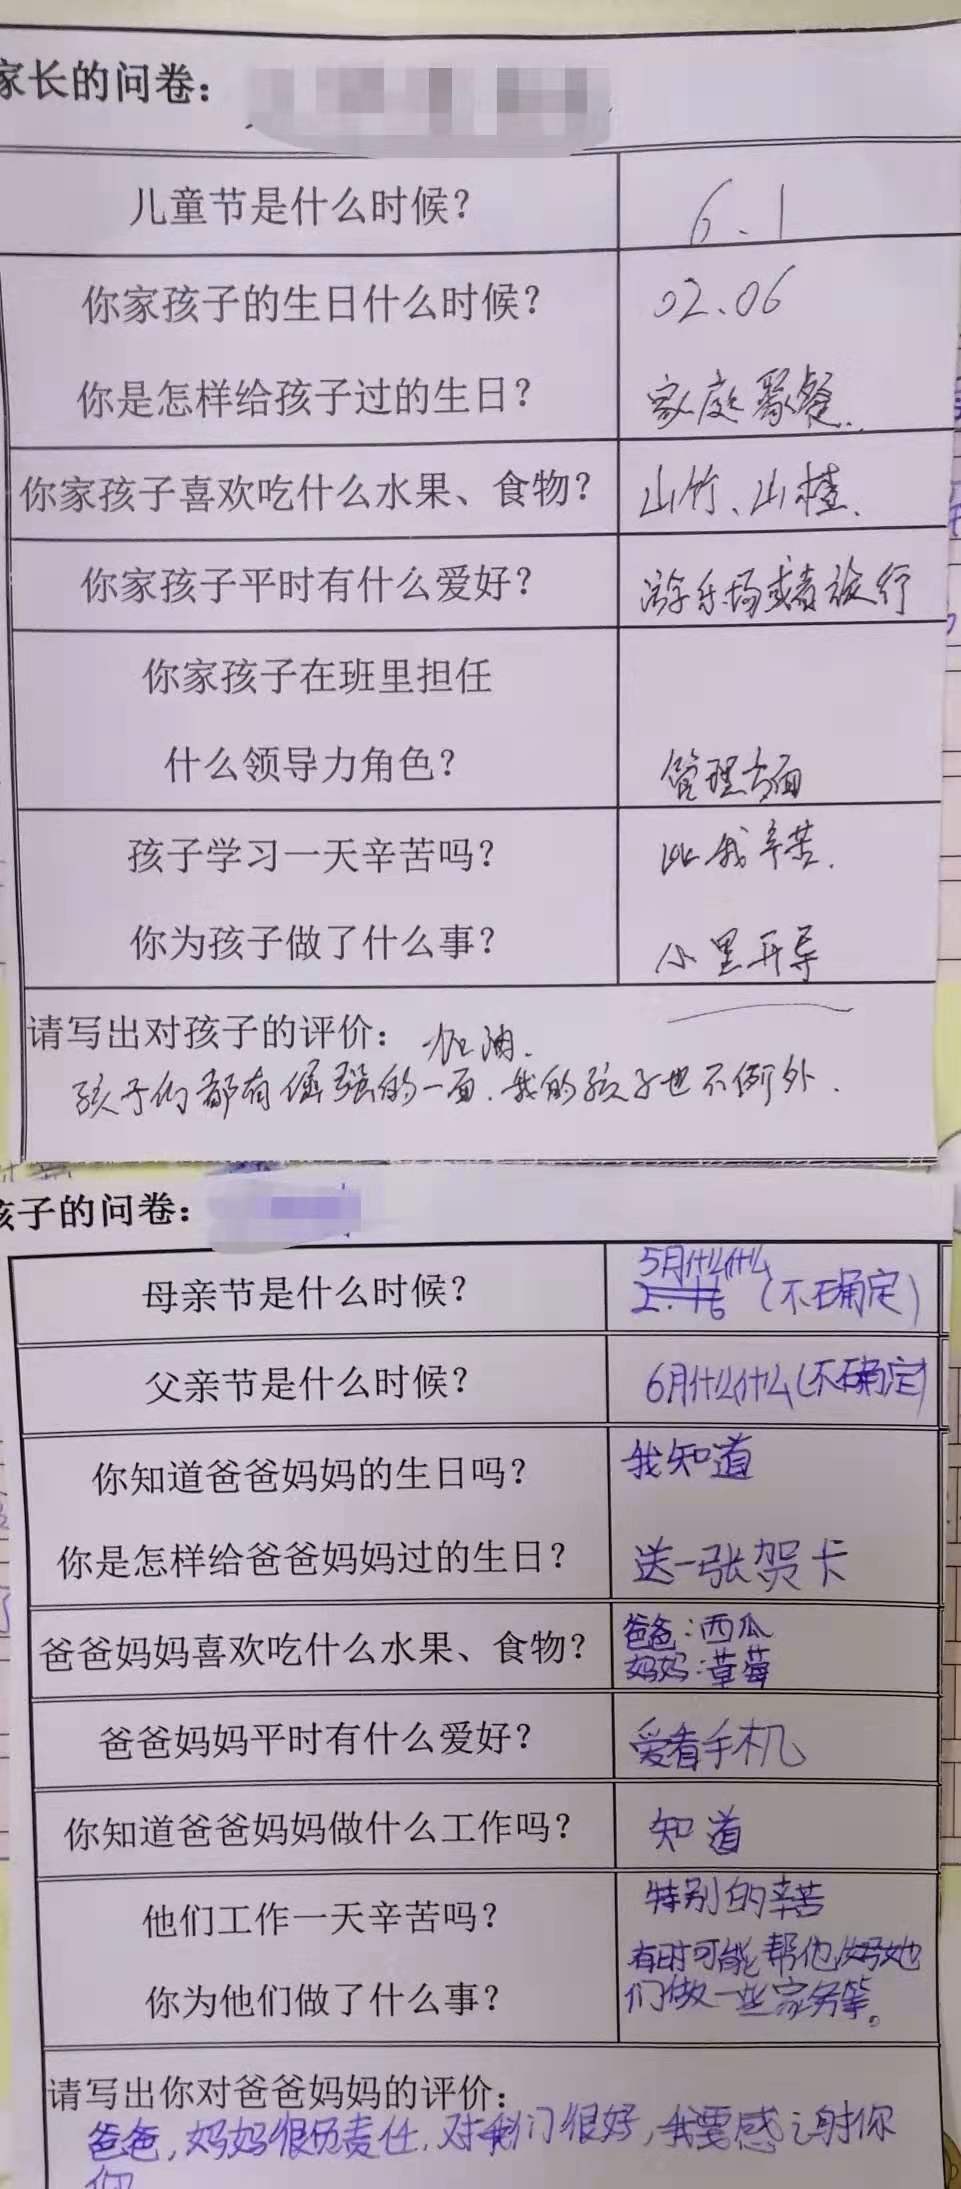 家长的问卷：
儿童节是什么时候？ 6.1
你家孩子的生日什么时候？ 02.06
你是怎样给孩子过的生日？ 家庭聚餐.
你家孩子喜欢吃什么水果、食物？ 山竹、山楂.
你家孩子平时有什么爱好？ 游乐场或者旅行
你家孩子在班里担任
什么领导力角色？ 管理方面
孩子学习一天辛苦吗？ 比我辛苦.
你为孩子做了什么事？ 心里开导
请写出对孩子的评价： 加油.
孩子们都有倔强的一面.我的孩子也不例外.
孩子的问卷：
5月什么什么
母亲节是什么时候？ 2.16 (不确定)
父亲节是什么时候？ 6月什么什么(不确定)
你知道爸爸妈妈的生日吗？ 我知道
你是怎样给爸爸妈妈过的生日？ 送一张贺卡
爸爸：西瓜
爸爸妈妈喜欢吃什么水果、食物？ 妈妈：草莓
爸爸妈妈平时有什么爱好？ 爱看手机
你知道爸爸妈妈做什么工作吗？ 知道
他们工作一天辛苦吗？ 特别的辛苦
有时可能帮他
你为他们做了什么事？ 们做一些家务等。
请写出你对爸爸妈妈的评价：
爸爸，妈妈很负责任，对我们很好，我要感谢你
们